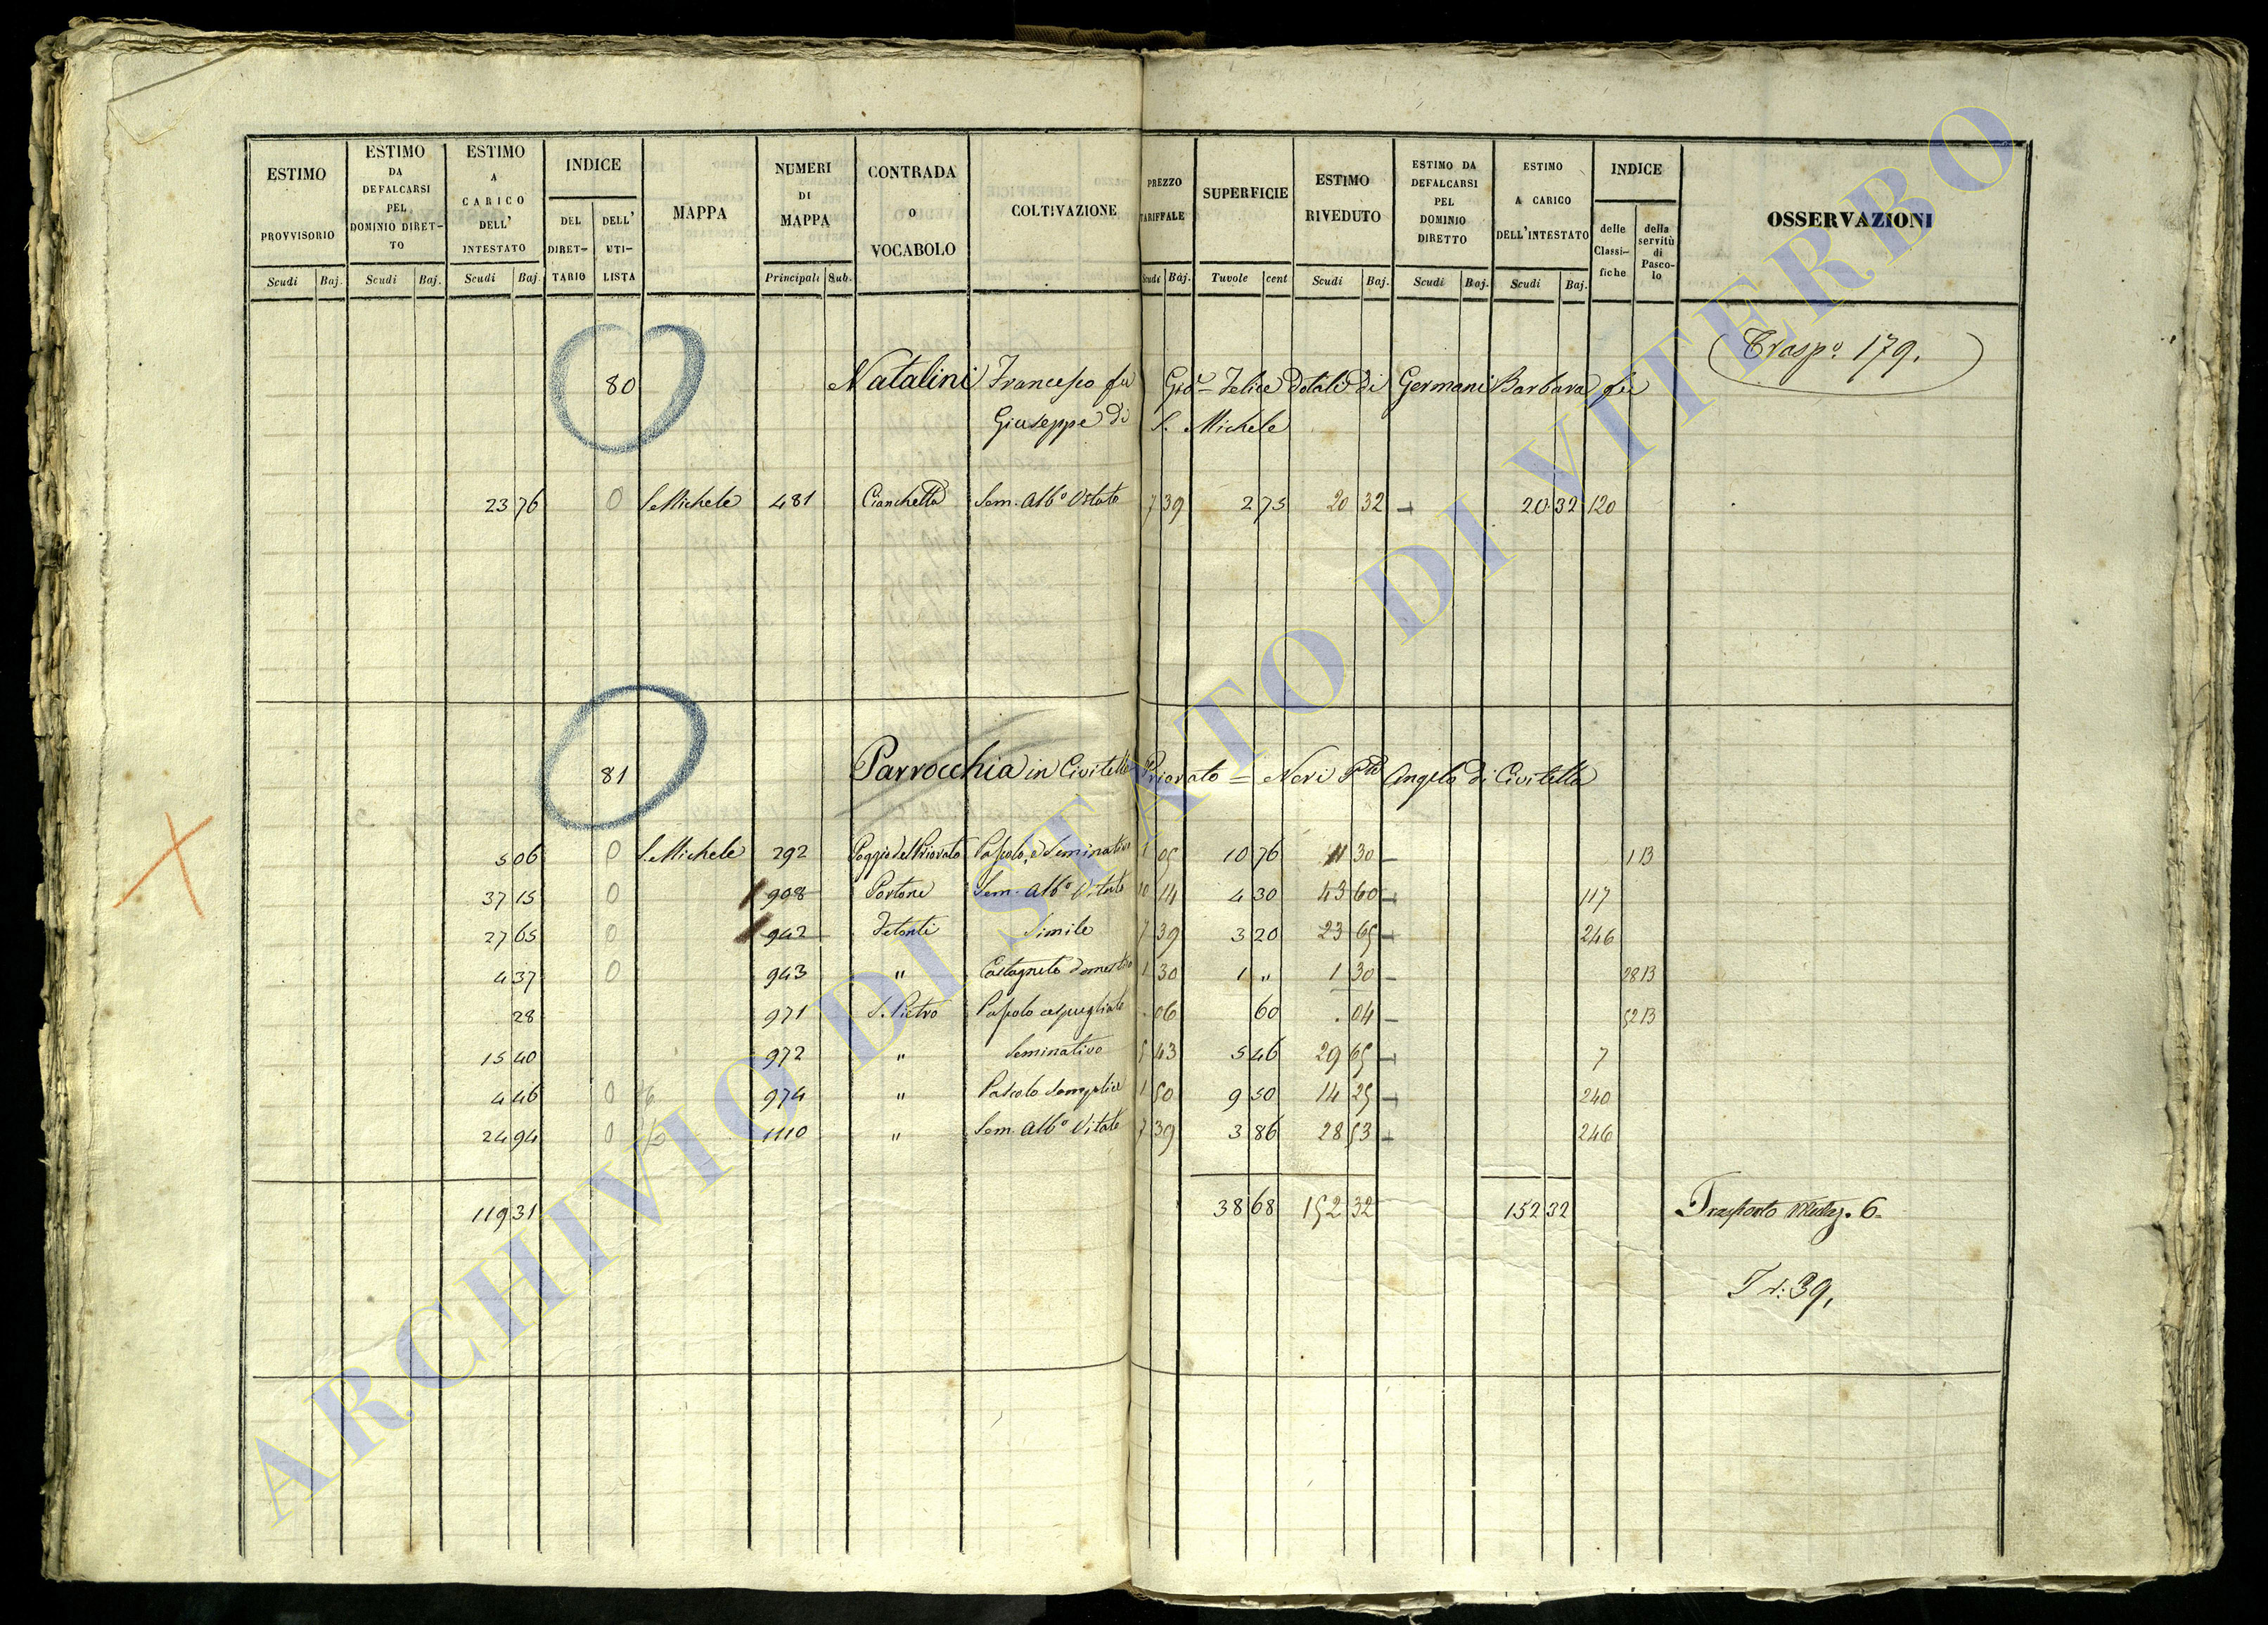 ESTIMO PROVVISORIO Scudi Baj.
ESTIMO DA DEFALCARSI PEL DOMINIO DIRET-TO Scudi Baj.
ESTIMO A CARICO DELL' INTESTATO Scudi Baj.
INDICE DEL DIRET-TARIO DELL' UTI-LISTA
MAPPA
NUMERI DI MAPPA Principali Sub.
CONTRADA O VOCABOLO
COLTIVAZIONE
PREZZO TARIFFALE Scudi Baj.
SUPERFICIE Tavole cent
ESTIMO RIVEDUTO Scudi Baj.
ESTIMO DA DEFALCARSI PEL DOMINIO DIRETTO Scudi Baj.
ESTIMO A CARICO DELL'INTESTATO Scudi Baj.
INDICE delle Classi-fiche della servitù di Pasco-lo
OSSERVAZIONI
Trasp.o 179.
80 Natalini Francesco fu Gio- Felice Dotali di Germani Barbara fu
Giuseppe di S. Michele
23 76 0 S. Michele 481 Cianchetta Sem. Alb.o Vitato 7 39 2 75 20 32 20 32 120
81 Parrocchia in Civitella Priorato = Neri Angelo di Civitella
5 06 0 S. Michele 292 Poggio del Priorato Pascolo, e Seminativo 1 05 10 76 11 30 1 B
37 15 0 908 Portone Sem. Alb.o Vitato 10 14 4 30 43 60 117
27 65 0 942 Fetonti Simile 7 39 3 20 23 65 246
4 37 0 943 " Castagneto domestico 1 30 1 " 1 30 28 B
28 971 S. Pietro Pascolo cespugliato . 06 60 . 04 52 B
15 40 972 " Seminativo 5 43 5 46 29 65 7
4 46 0 974 " Pascolo semplice 1 50 9 50 14 25 240
24 94 0 1110 " Sem. Alb.o Vitato 7 39 3 86 28 53 246
119 31 38 68 152 32 152 32 Trasporto 6.
Tr: 39,
ARCHIVIO DI STATO DI VITERBO